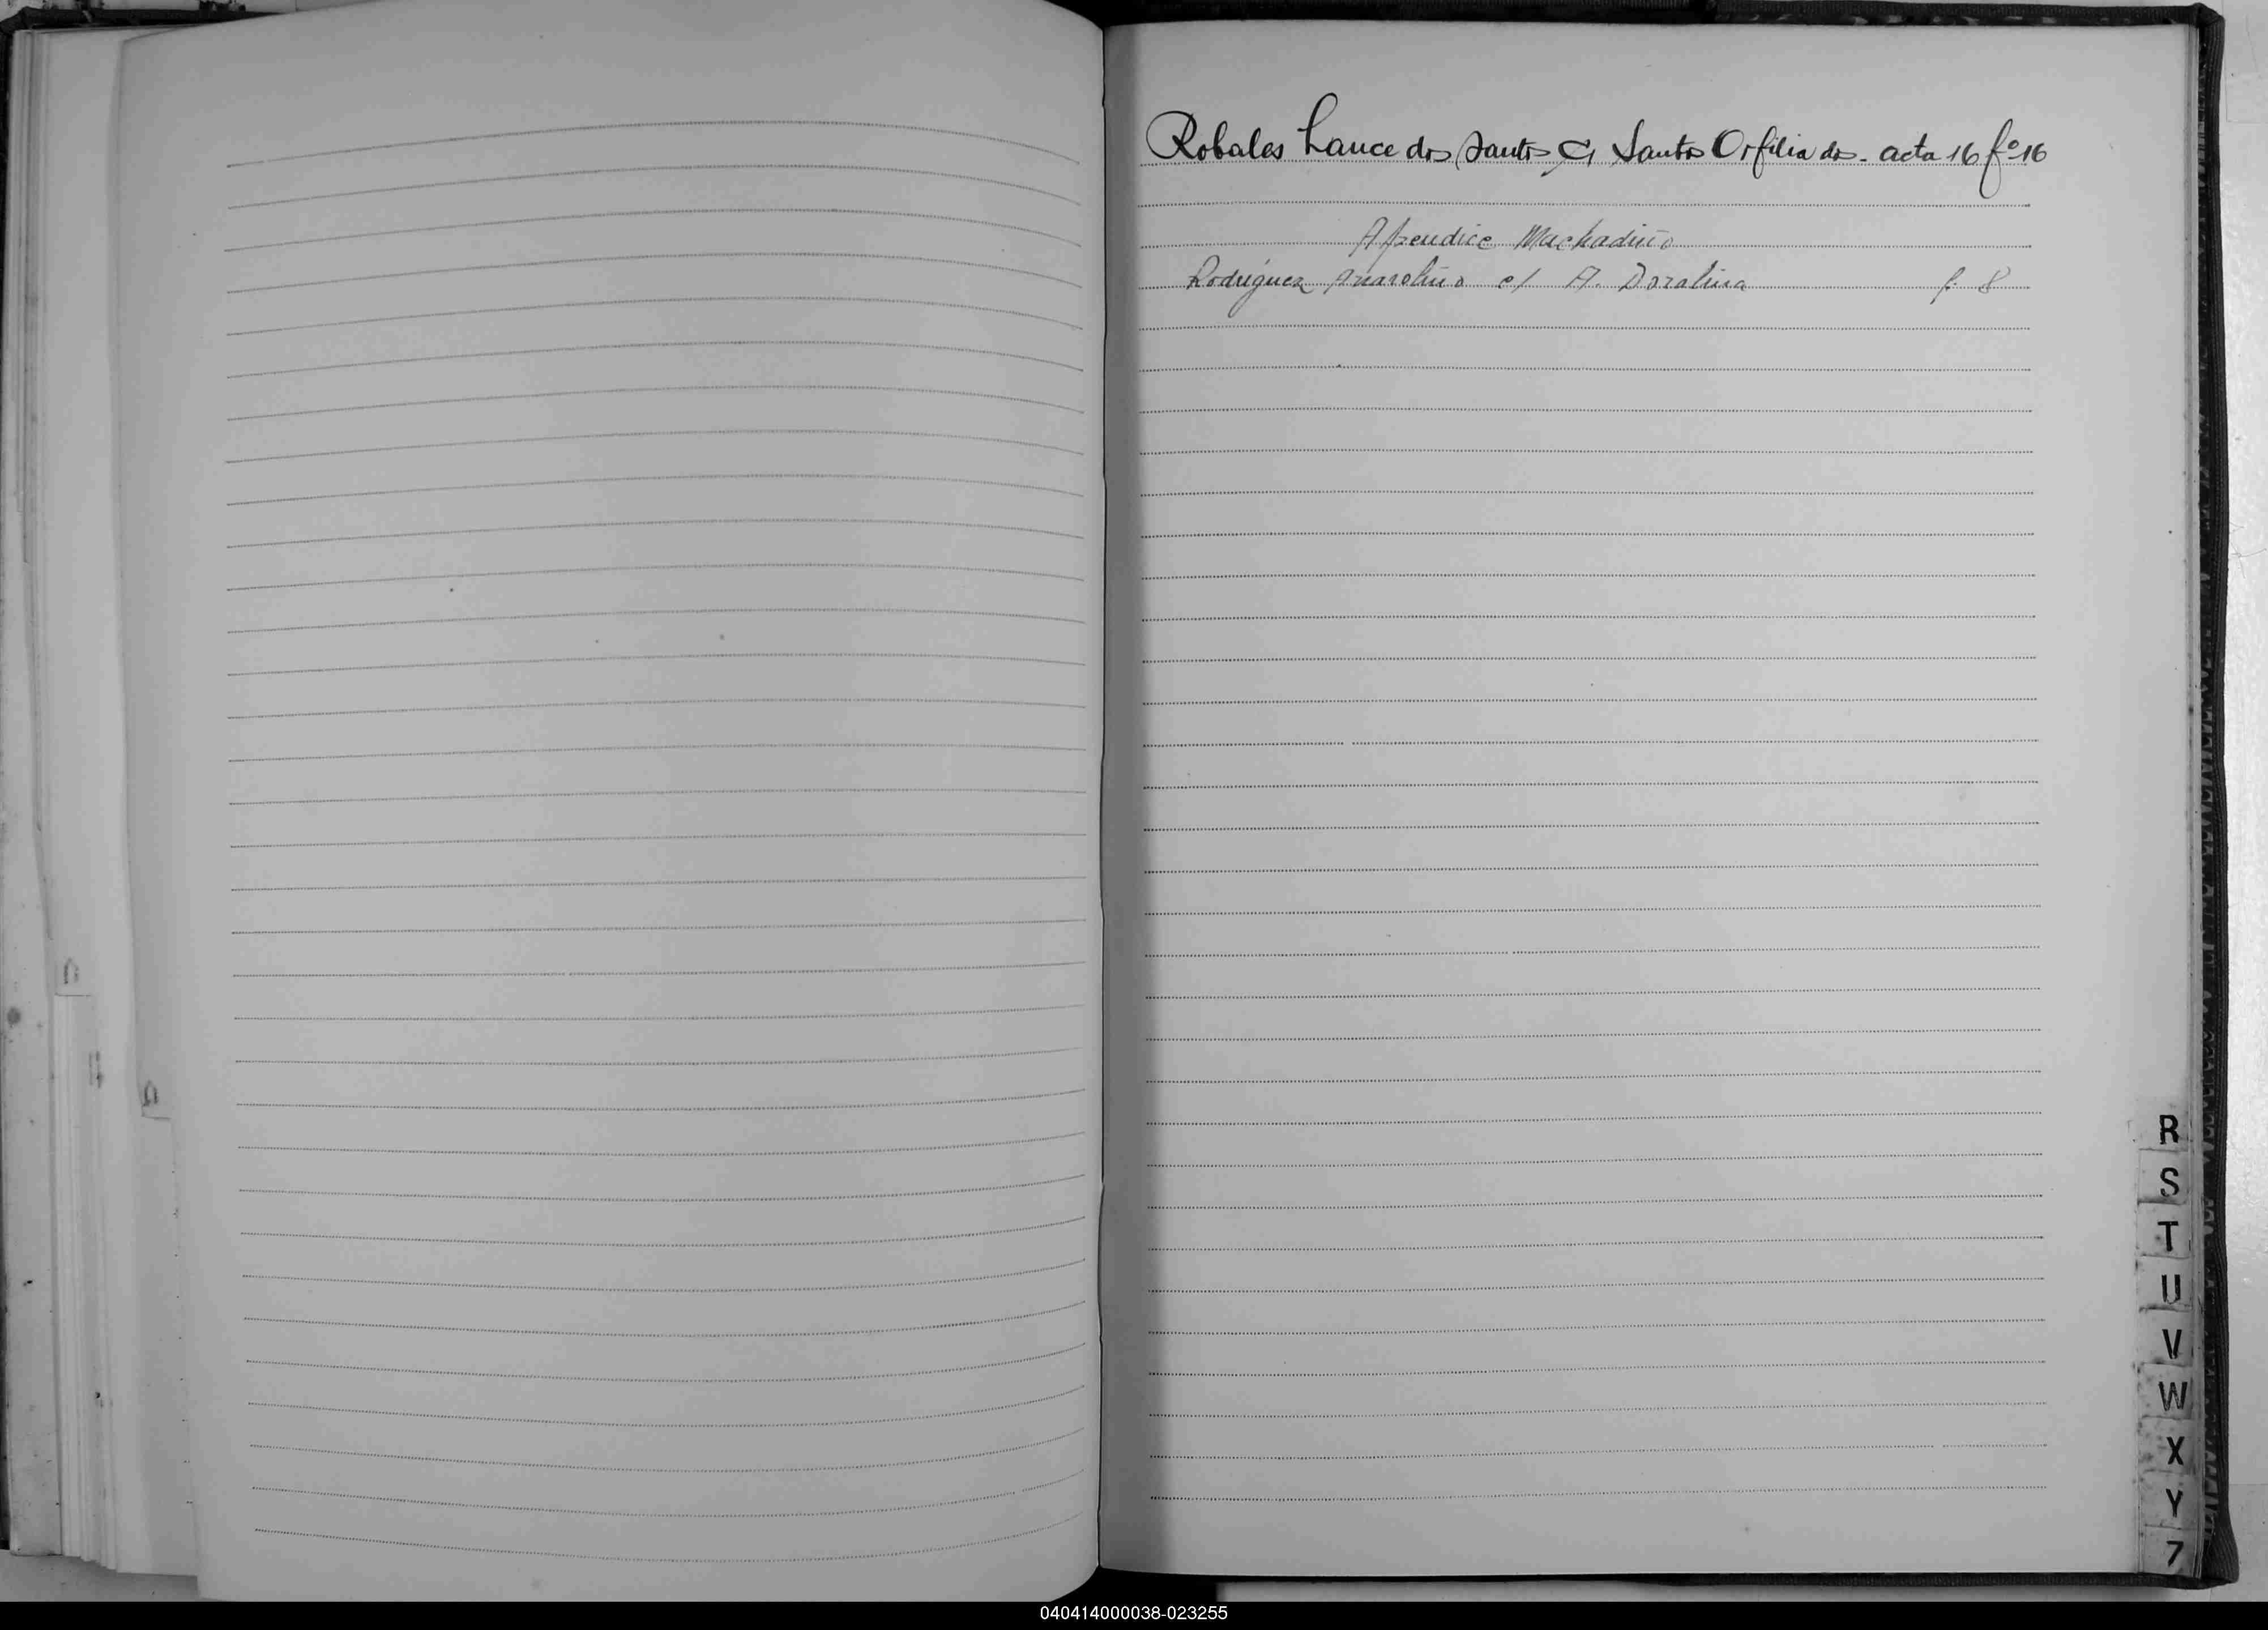 Robales Lauce dos Santos c/ Santos Orfilia dos. acta 16 fº 16
Apendice Machadiño
Rodríguez c/ A. Doralina f. 8
R
S
T
U
V
W
X
Y
Z
040414000038-023255